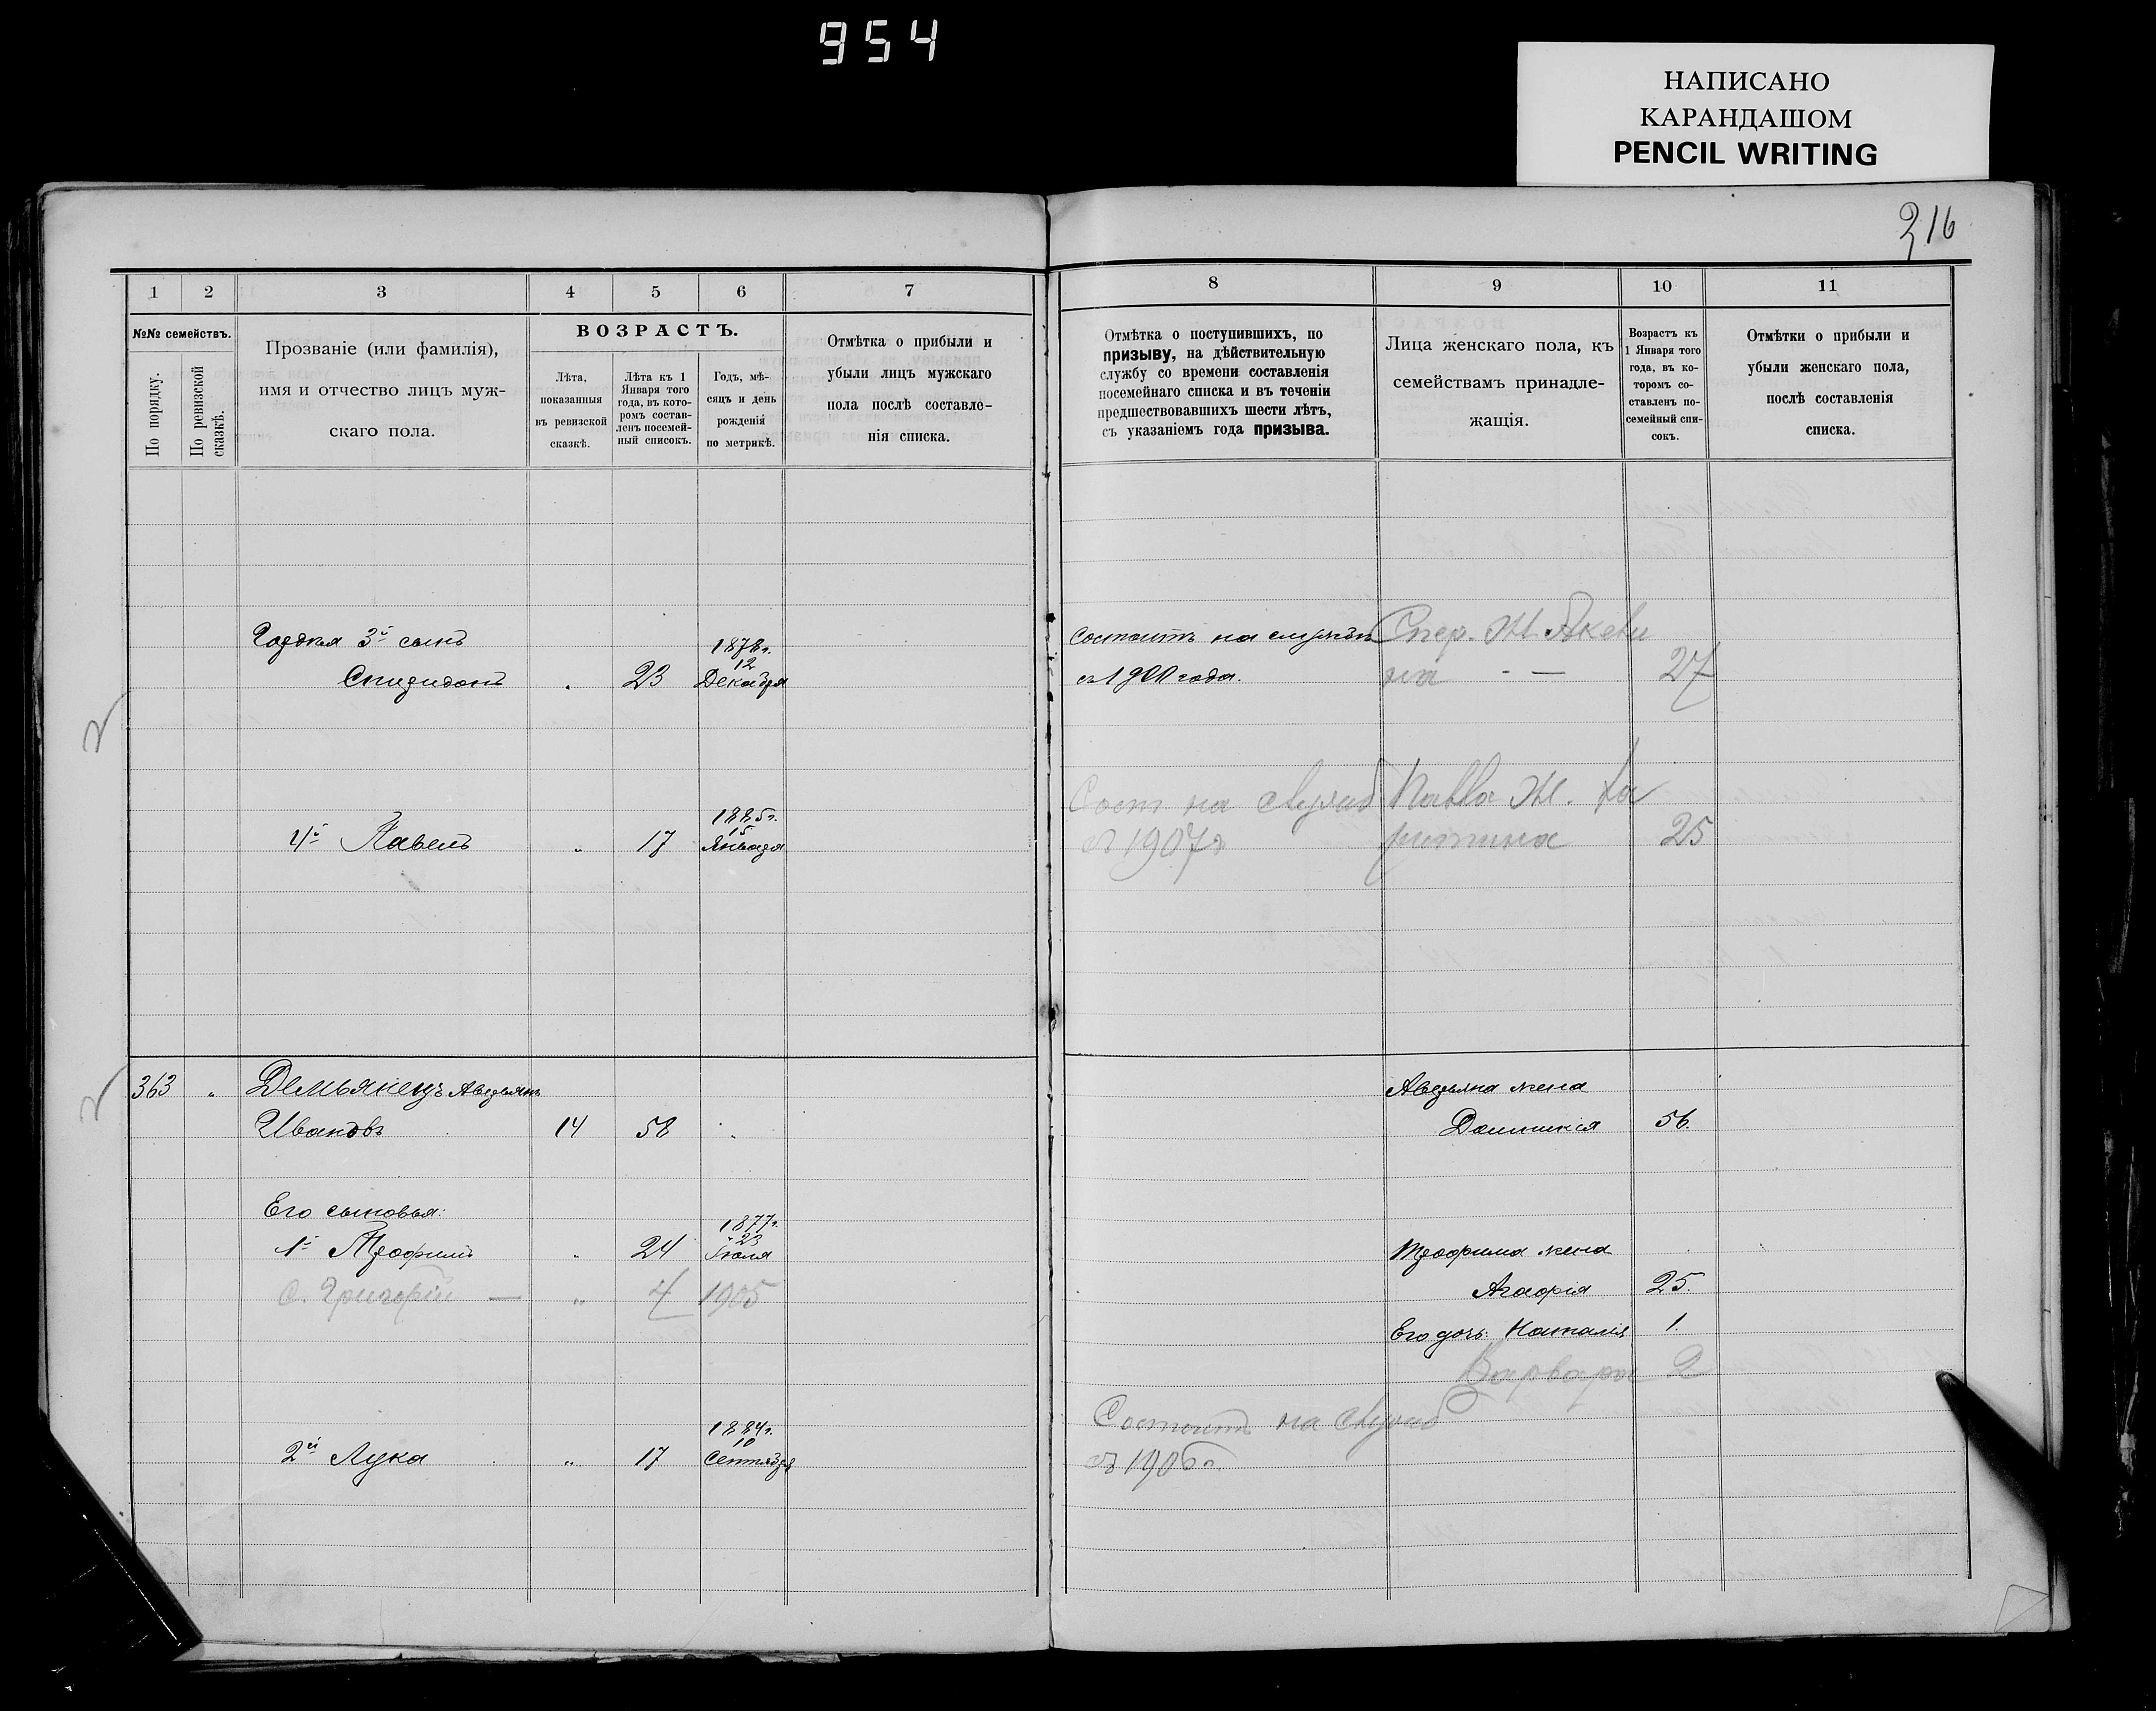 954
НАПИСАНО
КАРАНДАШОМ
PENCIL WRITING
216
1 2 3 4 5 6 7
№№ семействъ.
По порядку.
По ревизской сказкѣ.
Прозваніе (или фамилія),
имя и отчество лицъ муж-
скаго пола.
ВОЗРАСТЪ.
Лѣта,
показанныя
въ ревизской
сказкѣ.
Лѣта къ 1
Января того
года, въ кото-
ромъ состав-
ленъ посемей-
ный списокъ.
Годъ, мѣ-
сяцъ и день
рожденія
по метрикѣ.
Отмѣтка о прибыли и
убыли лицъ мужскаго
пола послѣ составле-
нія списка.
3й сынъ
1878г.
12
Спиридонъ 23 Декабря
1885г.
15
4й Павелъ „ 17 Января
363 „ Демьянецъ Аверьянъ
Ивановъ 14 58 „
Его сыновья:
1877г.
23
1й Трофимъ „ 24 Іюля
с. Григорій — „ 4 1905
1884г.
10
2й Лука „ 17 Сентября
8 9 10 11
Отмѣтка о поступившихъ, по
призыву, на дѣйствительную
службу со времени составленія
посемейнаго списка и въ теченіи
предшествовавшихъ шести лѣтъ,
съ указаніемъ года призыва.
Лица женскаго пола, къ
семействамъ принадле-
жащія.
Возрастъ къ
1 Января того
года, въ ко-
торомъ со-
ставленъ по-
семейный спи-
сокъ.
Отмѣтки о прибыли и
убыли женскаго пола,
послѣ составленія
списка.
Состоитъ на службѣ
съ 1900 года. 27
Сост на службѣ Павла Ж. Ка
съ 1907г теrина 25
Аверьяна жена
Домникія 56.
Трофима жена
Агафія 25.
Его дочь: Наталія 1.
Варвара 2
Состоитъ на службѣ
съ 1906г.